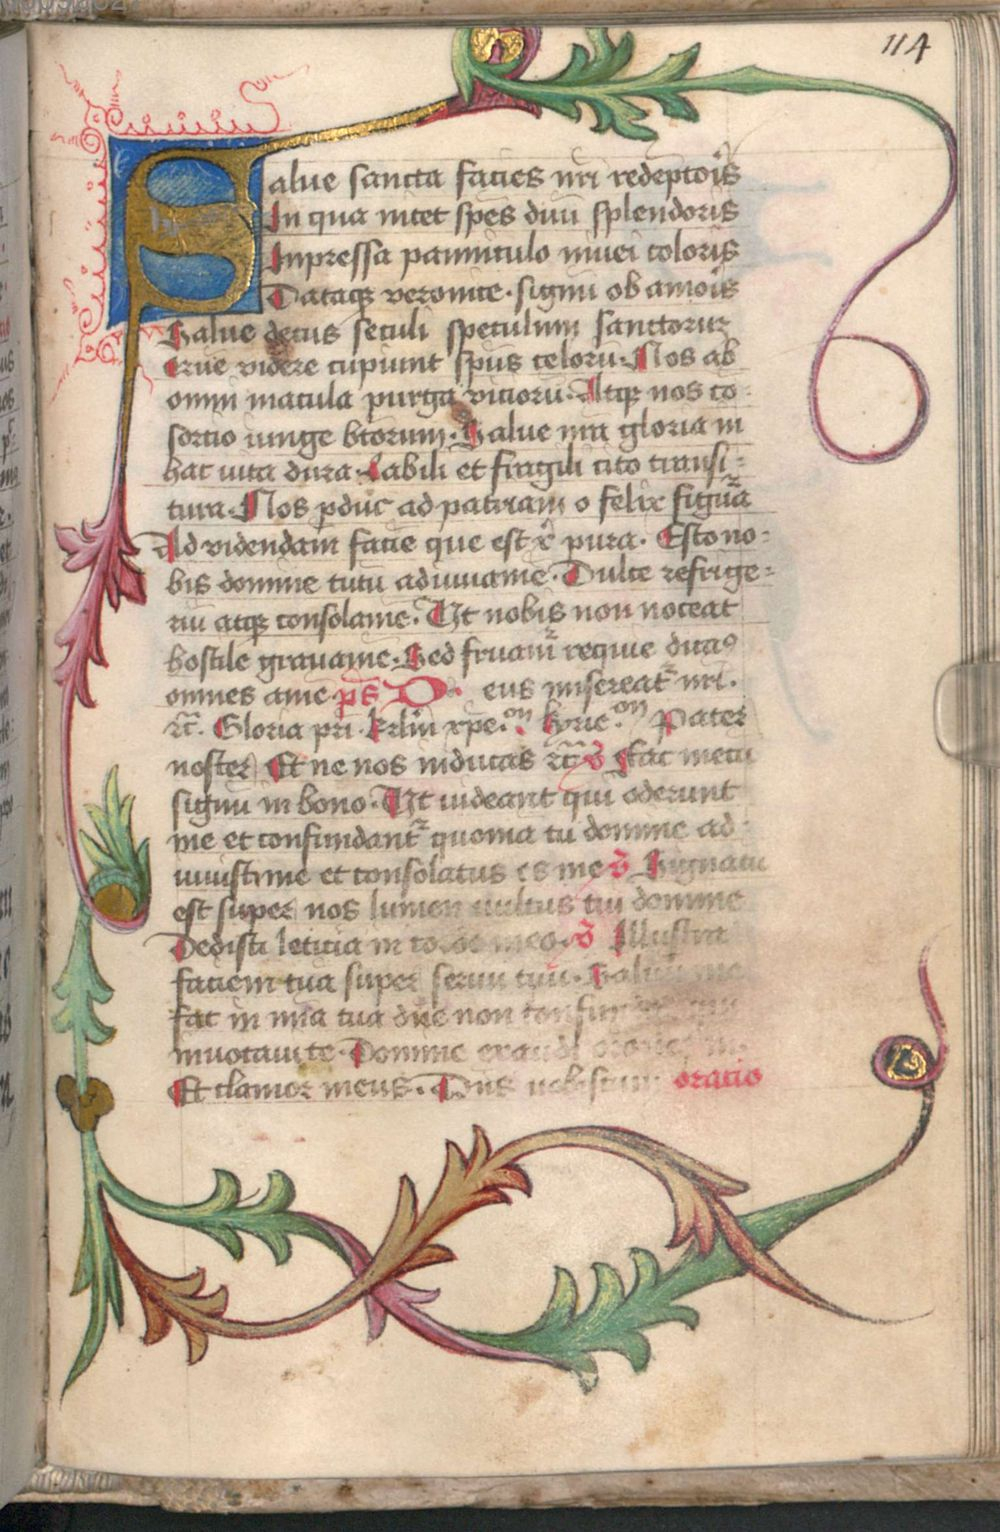 114
Salue sancta facies nri redeptoris
In qua nitet spes diuini splendoris
Inpressa panniculo niuei coloris
Dataq veronice · signu ob amoris
Salue decus seculi speculum sanctorum
Que videre cupiunt spus celoru · Nos ab
omni macula purga vicioru · Atq nos co
sorcio iunge btorum · Salue nra gloria in
hac uita dura · Labili et fragili cito transi=
tura · Nos pduc ad patriam o felix figura
Ad videndam facie que est x pura · Esto no=
bis domine tutu adiuuame · Dulce refrige=
riu atq consolame · Ut nobis non noceat
hostile grauame · Sed fruam requie dicas
omnes ame · ps Deus misereat nri ·
rc. Gloria pri · krlin xpe.on kyrie.on Pater
noster Et ne nos inducas rc v Fac mecu
signu in bono · Ut uideant qui oderunt
me et confundant quonia tu domine ad
iuuisti me et consolatus es me v Signatu
est super nos lumen uultus tui domine
Dedisti leticia in corde meo · v Illustra
faciem tua super seruu tuu · Saluu me
fac in mia tua dne non confundar
inuocaui te · Domine exaudi
Et clamor meus · Dns uobiscum oracio